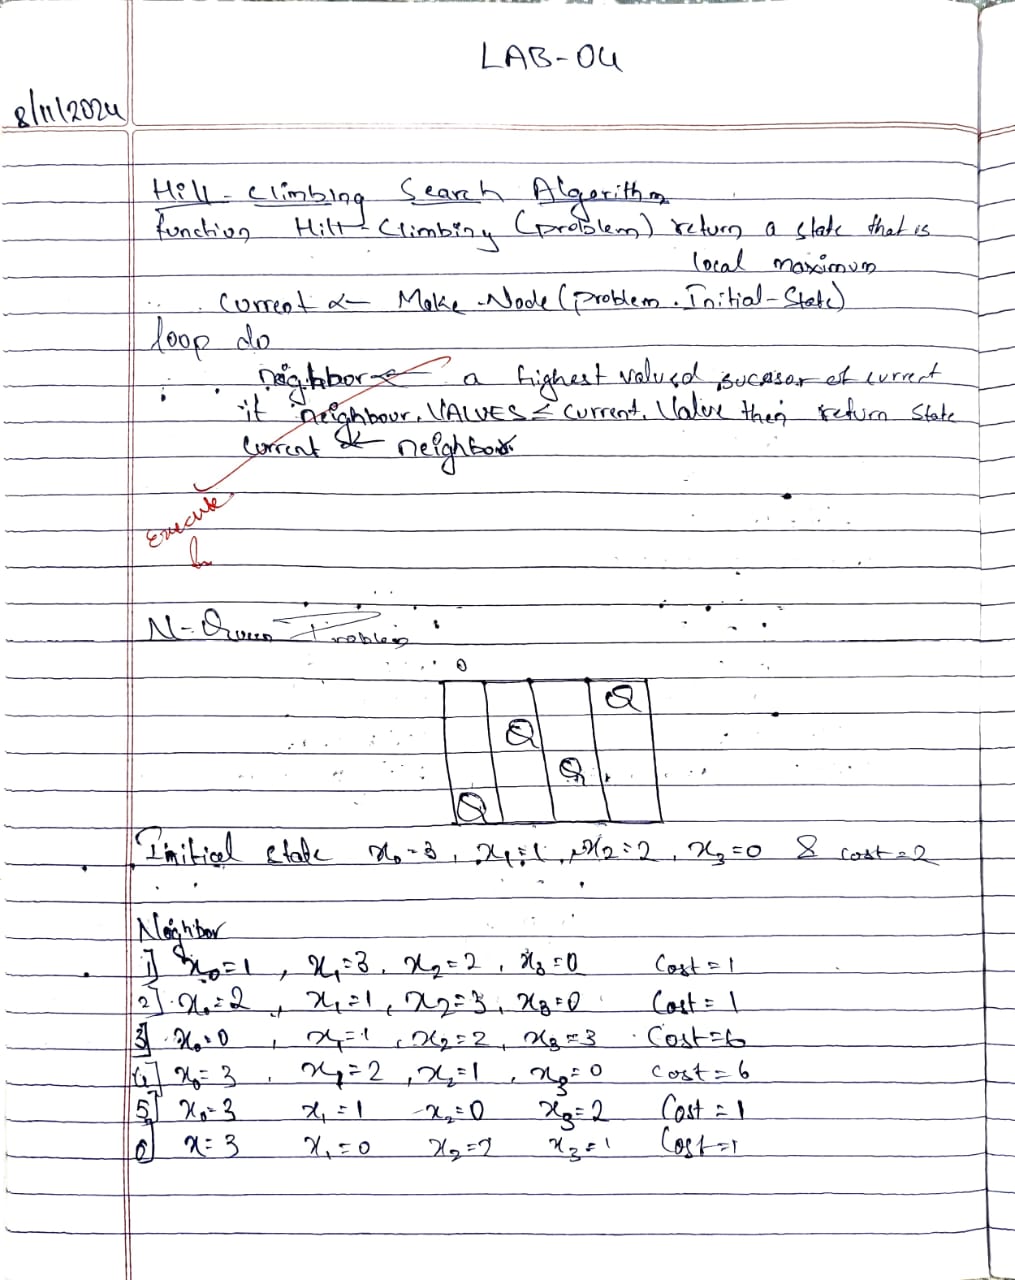 LAB-04
8/11/2024
Hill-Climbing Search Algorithm
function Hill-Climbing (problem) return a state that is
local maximum
Current ← Make-Node (problem.Initial-State)
loop do
neighbor ← a highest valued sucessor of current
if neighbour.VALUES ≤ current.Value then return state
current ← neighbor
Execute
N-Queen Problem
0
Q
Q
Q
Q
Initial state x₀=3, x₁=1, x₂=2, x₃=0 & cost=2
Neighbor
1] x₀=1, x₁=3, x₂=2, x₃=0 Cost=1
2] x₀=2, x₁=1, x₂=3, x₃=0 Cost=1
3] x₀=0, x₁=1, x₂=2, x₃=3 Cost=6
4] x₀=3, x₁=2, x₂=1, x₃=0 cost=6
5] x₀=3 x₁=1 x₂=0 x₃=2 Cost=1
6] x=3 x₁=0 x₂=2 x₃=1 Cost=1